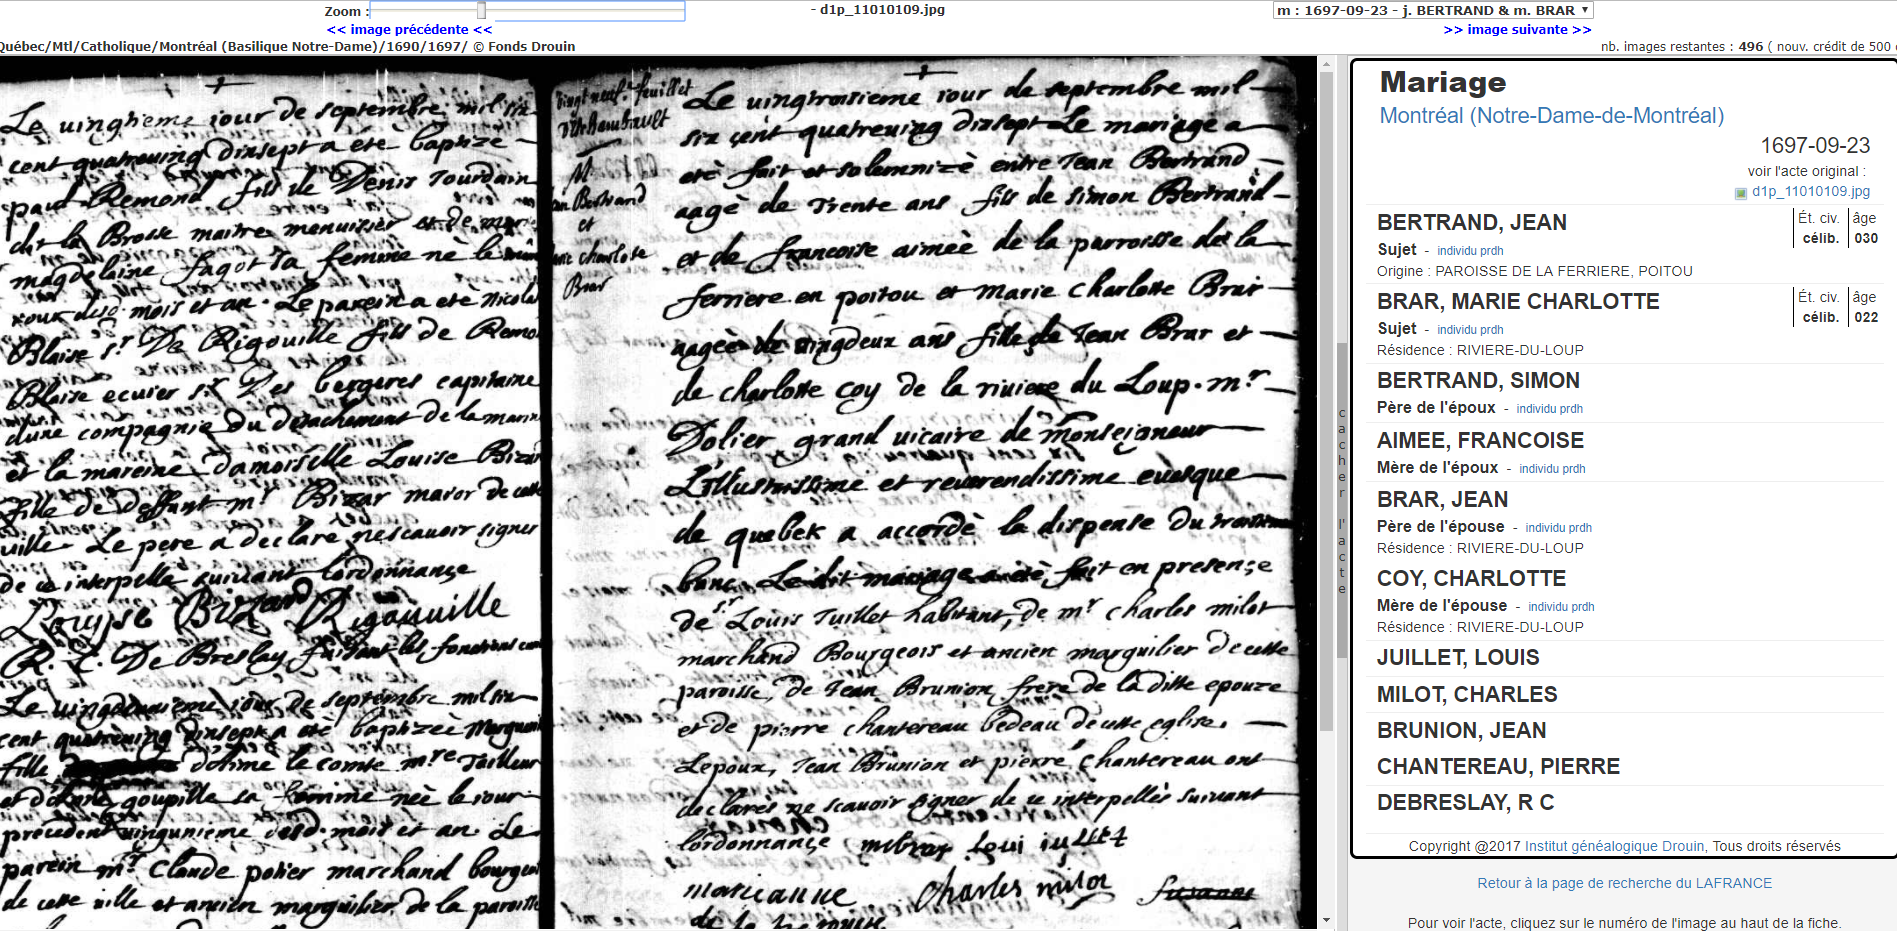 Zoom :
- d1p_11010109.jpg
m : 1697-09-23 - j. BERTRAND & m. BRAR
<< image précédente <<
>> image suivante >>
Québec/Mtl/Catholique/Montréal (Basilique Notre-Dame)/1690/1697/ © Fonds Drouin
nb. images restantes : 496 ( nouv. crédit de 500
Le uingtieme iour de septembre mil six
cent quatreuing dinsept a eté baptizé
paul Remond fils de Denis Jourdain
dit la Brosse maitre menuisier et de marie
magdelaine fagot sa femme né le même
iour desd. mois et an. Le parein a eté Nicolas
Blaise Sr. De Rigouille fils de Remo
Blaise ecuier Sr. Des bergeres capitaine
dune compagnie du detachement de la marin
et la mareine damoiselle Louise Bizar
fille de deffunt mr Bizar maior de cette
uille. Le pere a declaré ne scauoir signer
de ce interpellé suiuant lordonnance
Louyse Bizard Rigauuille
R. C. De Breslay faisant les fonctions curé
Le uingdeuxieme iour de septembre mil six
cent quatreuing dinsept a eté baptizée Marguerit
fille dolime le comte mre Tailleur
et de goupille sa femme née le iour
precedent uingunieme desd. mois et an. Le
parein mr Claude potier marchand bourgeoi
de cette uille et ancien marguilier de la paroisse
uingt neufe. feuillet
M
an Bertrand
et
arie charlotte
Brar
Le uingtroisieme iour de septembre mil
six cent quatreuing dinsept Le mariage a
eté fait et solemnizé entre Jean Bertrand
aagé de trente ans fils de simon Bertrand
et de francoise aimée de la parroisse de la
ferriere en poitou et marie charlotte Brar
aagée de uingdeux ans fille de Jean Brar et
de charlotte coy de la riuiere du Loup. mr
Dolier grand uicaire de Monseigneur
L'illustrissime et reuerendissime euesque
de quebek a accordé la dispense du troisieme
banc. Le dit mariage a eté fait en presence
de sr. Louis Juillet habitant, de mr charles milot
marchand Bourgeois et ancien marguilier de cette
paroisse, de Jean Brunion frere de la ditte epouze
et de pierre chantereau bedeau de cette eglise.
Lepoux, Jean Brunion et pierre chantereau ont
declarés ne scauoir signer de ce interpellés suiuant
lordonnance mcbrar loui iullet
marianne Charles milot
Mariage
Montréal (Notre-Dame-de-Montréal)
1697-09-23
voir l'acte original :
d1p_11010109.jpg
BERTRAND, JEAN Ét. civ. âge
Sujet - individu prdh célib. 030
Origine : PAROISSE DE LA FERRIERE, POITOU
BRAR, MARIE CHARLOTTE Ét. civ. âge
Sujet - individu prdh célib. 022
Résidence : RIVIERE-DU-LOUP
BERTRAND, SIMON
Père de l'époux - individu prdh
AIMEE, FRANCOISE
Mère de l'époux - individu prdh
BRAR, JEAN
Père de l'épouse - individu prdh
Résidence : RIVIERE-DU-LOUP
COY, CHARLOTTE
Mère de l'épouse - individu prdh
Résidence : RIVIERE-DU-LOUP
JUILLET, LOUIS
MILOT, CHARLES
BRUNION, JEAN
CHANTEREAU, PIERRE
DEBRESLAY, R C
Copyright @2017 Institut généalogique Drouin, Tous droits réservés
Retour à la page de recherche du LAFRANCE
Pour voir l'acte, cliquez sur le numéro de l'image au haut de la fiche.
cacher l'acte